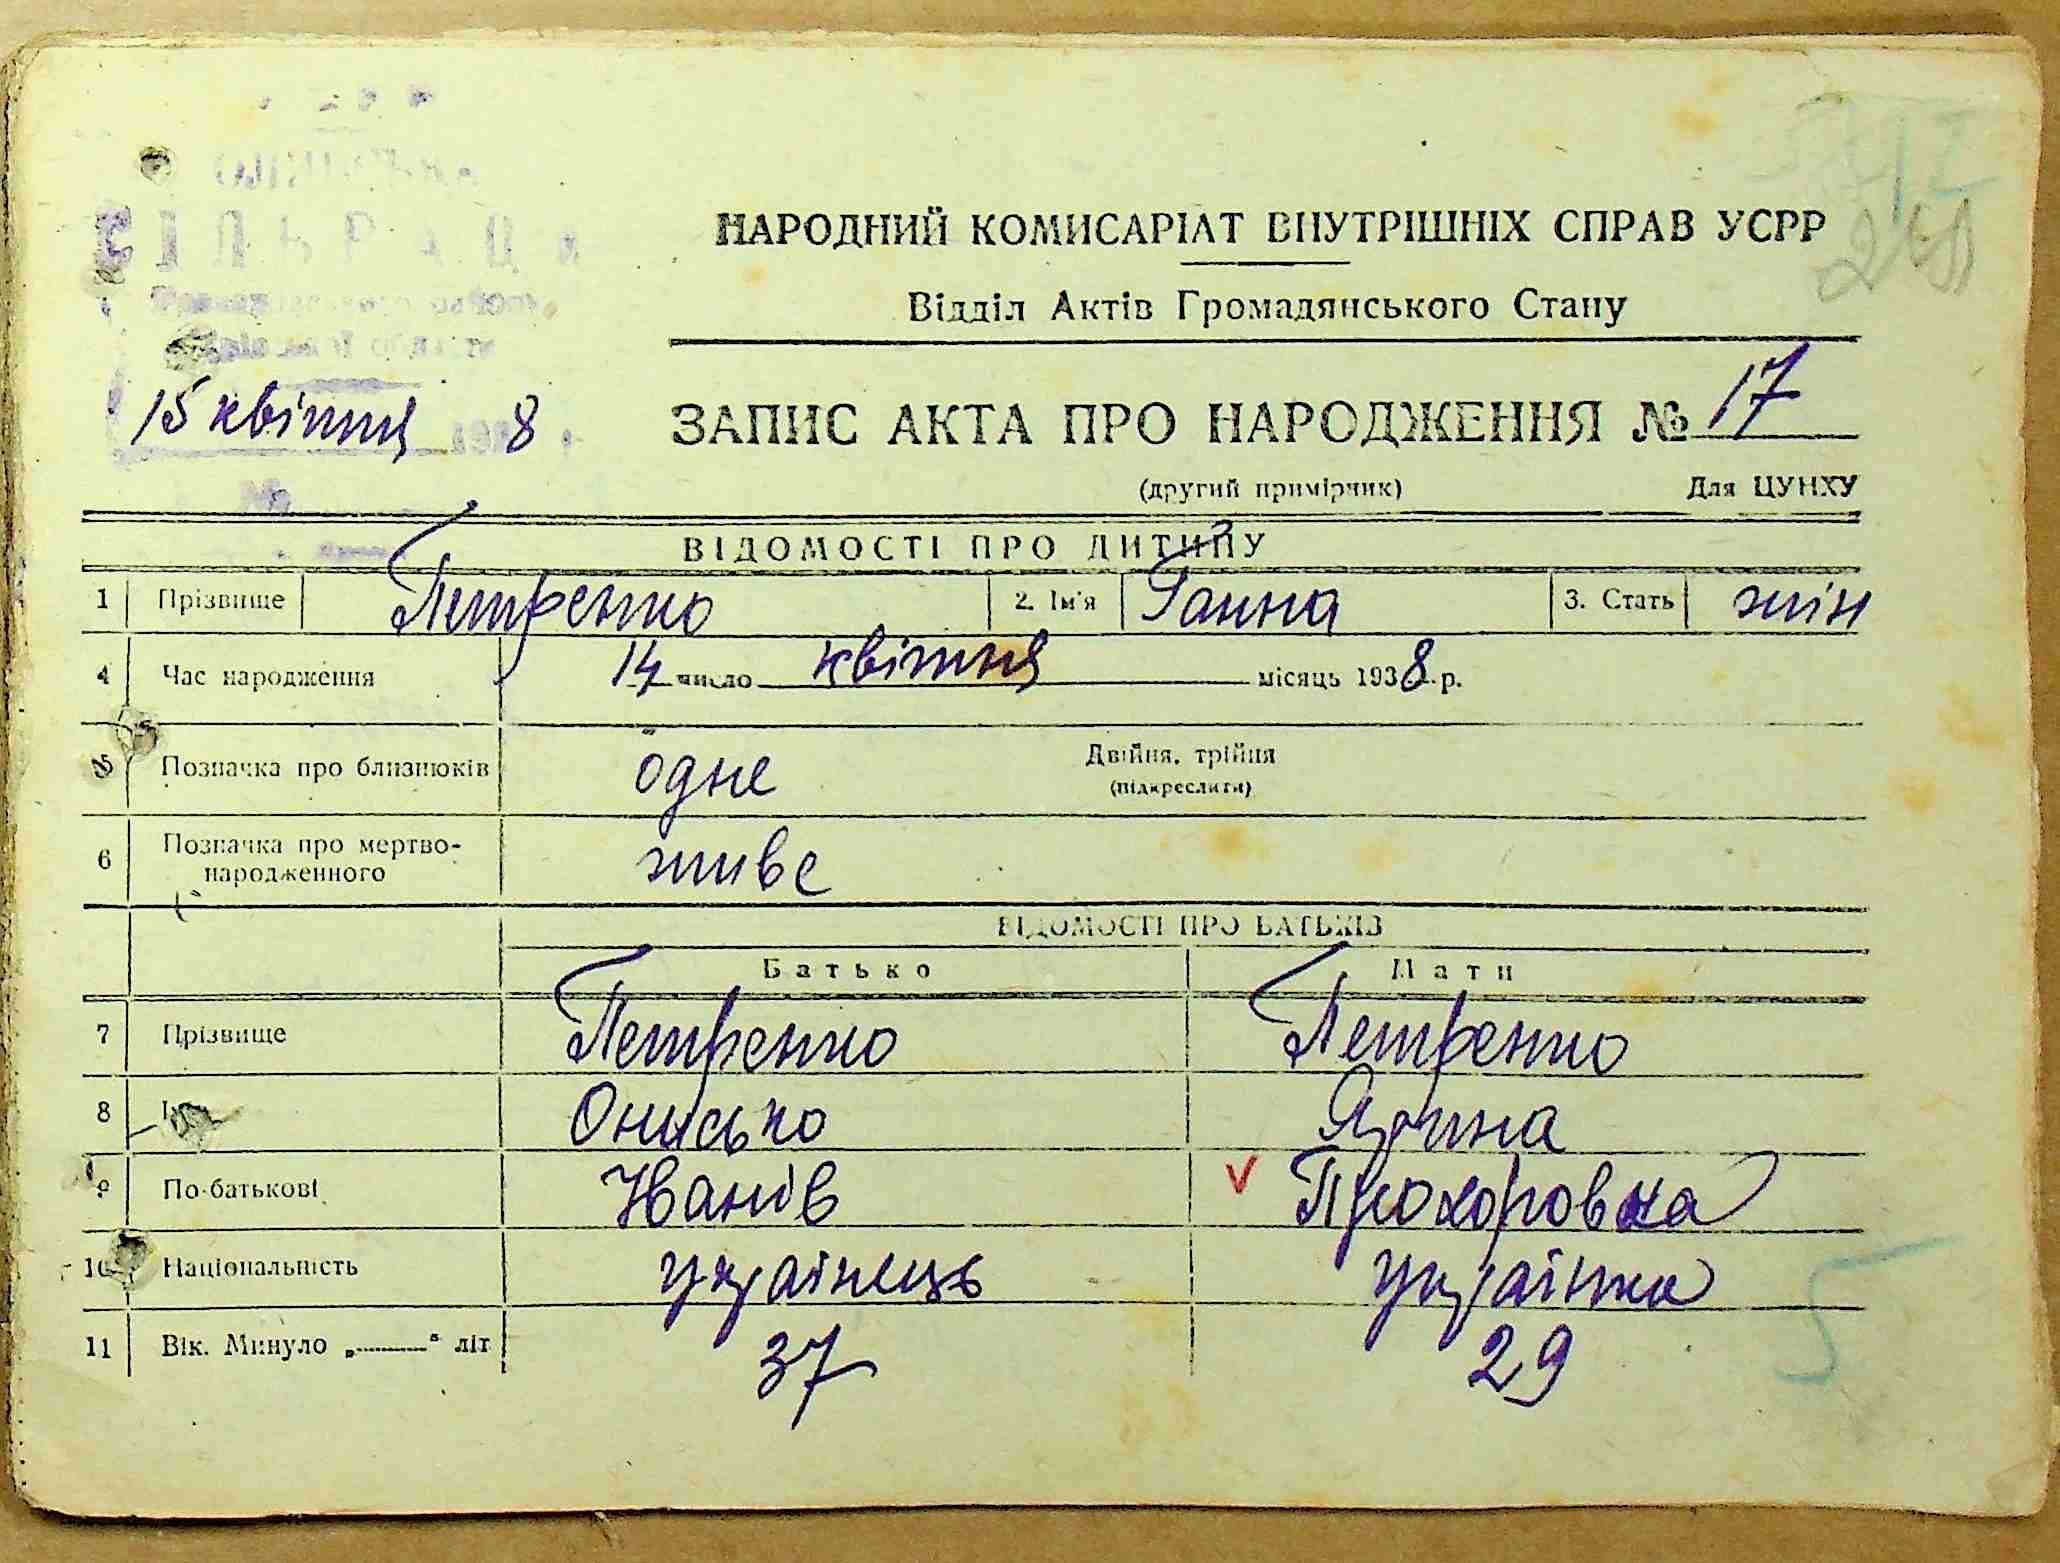 НАРОДНИЙ КОМИСАРІАТ ВНУТРІШНІХ СПРАВ УСРР
Відділ Актів Громадянського Стану
15 квітня 8
ЗАПИС АКТА ПРО НАРОДЖЕННЯ № 17
(другий примірчик) Для ЦУНХУ
ВІДОМОСТІ ПРО ДИТИНУ
1 Прізвище Петренко 2. Ім'я Ганна 3. Стать жін
4 Час народження 14 число квітня місяць 1938 р.
5 Позначка про близнюків одне Двійня, трійня
(підкреслити)
6 Позначка про мертво-
народженного живе
ВІДОМОСТІ ПРО БАТЬКІВ
Батько Мати
7 Прізвище Петренко Петренко
8 Онисько Ярина
9 По-батькові Іванів V Прохоровна
10 Національність українець українка
11 Вік. Минуло „ “ літ 37 29
5